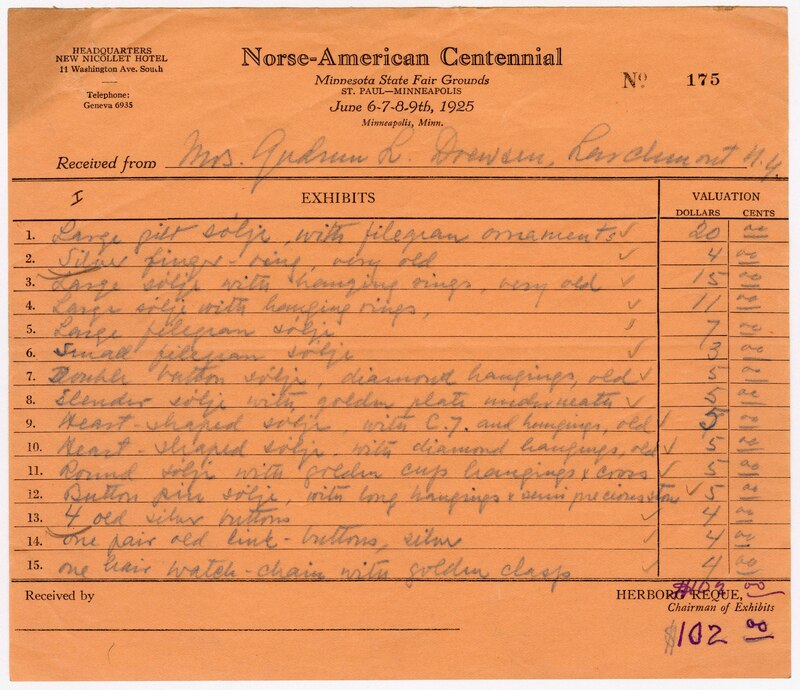 HEADQUARTERS
NEW NICOLLET HOTEL
11 Washington Ave. South
Telephone:
Geneva 6935
Norse-American Centennial
Minnesota State Fair Grounds
ST. PAUL—MINNEAPOLIS
June 6-7-8-9th, 1925
Minneapolis, Minn.
No 175
Received from Mrs. Gudrun L. Drewsen, Larchmont N.Y.
I EXHIBITS VALUATION
DOLLARS CENTS
1. Large gilt sølje, with filegran ornaments ✓ 20 00
2. Silver finger-ring, very old ✓ 4 00
3. Large sølje with hanging rings, very old ✓ 15 00
4. Large sølje with hanging rings, ✓ 11 00
5. Large filegran sølje ✓ 7 00
6. Small filegran sølje ✓ 3 00
7. Double button sølje, diamond hangings, old ✓ 5 00
8. Slender sølje with golden plate underneath ✓ 5 00
9. Heart-shaped sølje, with C.7. and hangings, old ✓ 5 00
10. Heart-shaped sølje, with diamond hangings, old ✓ 5 00
11. Round sølje with golden cup hangings & cross ✓ 5 00
12. Button pin sølje, with long hangings & semi precious ston ✓ 5 00
13. 4 old silver buttons ✓ 4 00
14. one pair old link-buttons, silver ✓ 4 00
15. one hair watch-chain with golden clasp ✓ 4 00
Received by
HERBORG REQUE,
Chairman of Exhibits
$102
$102